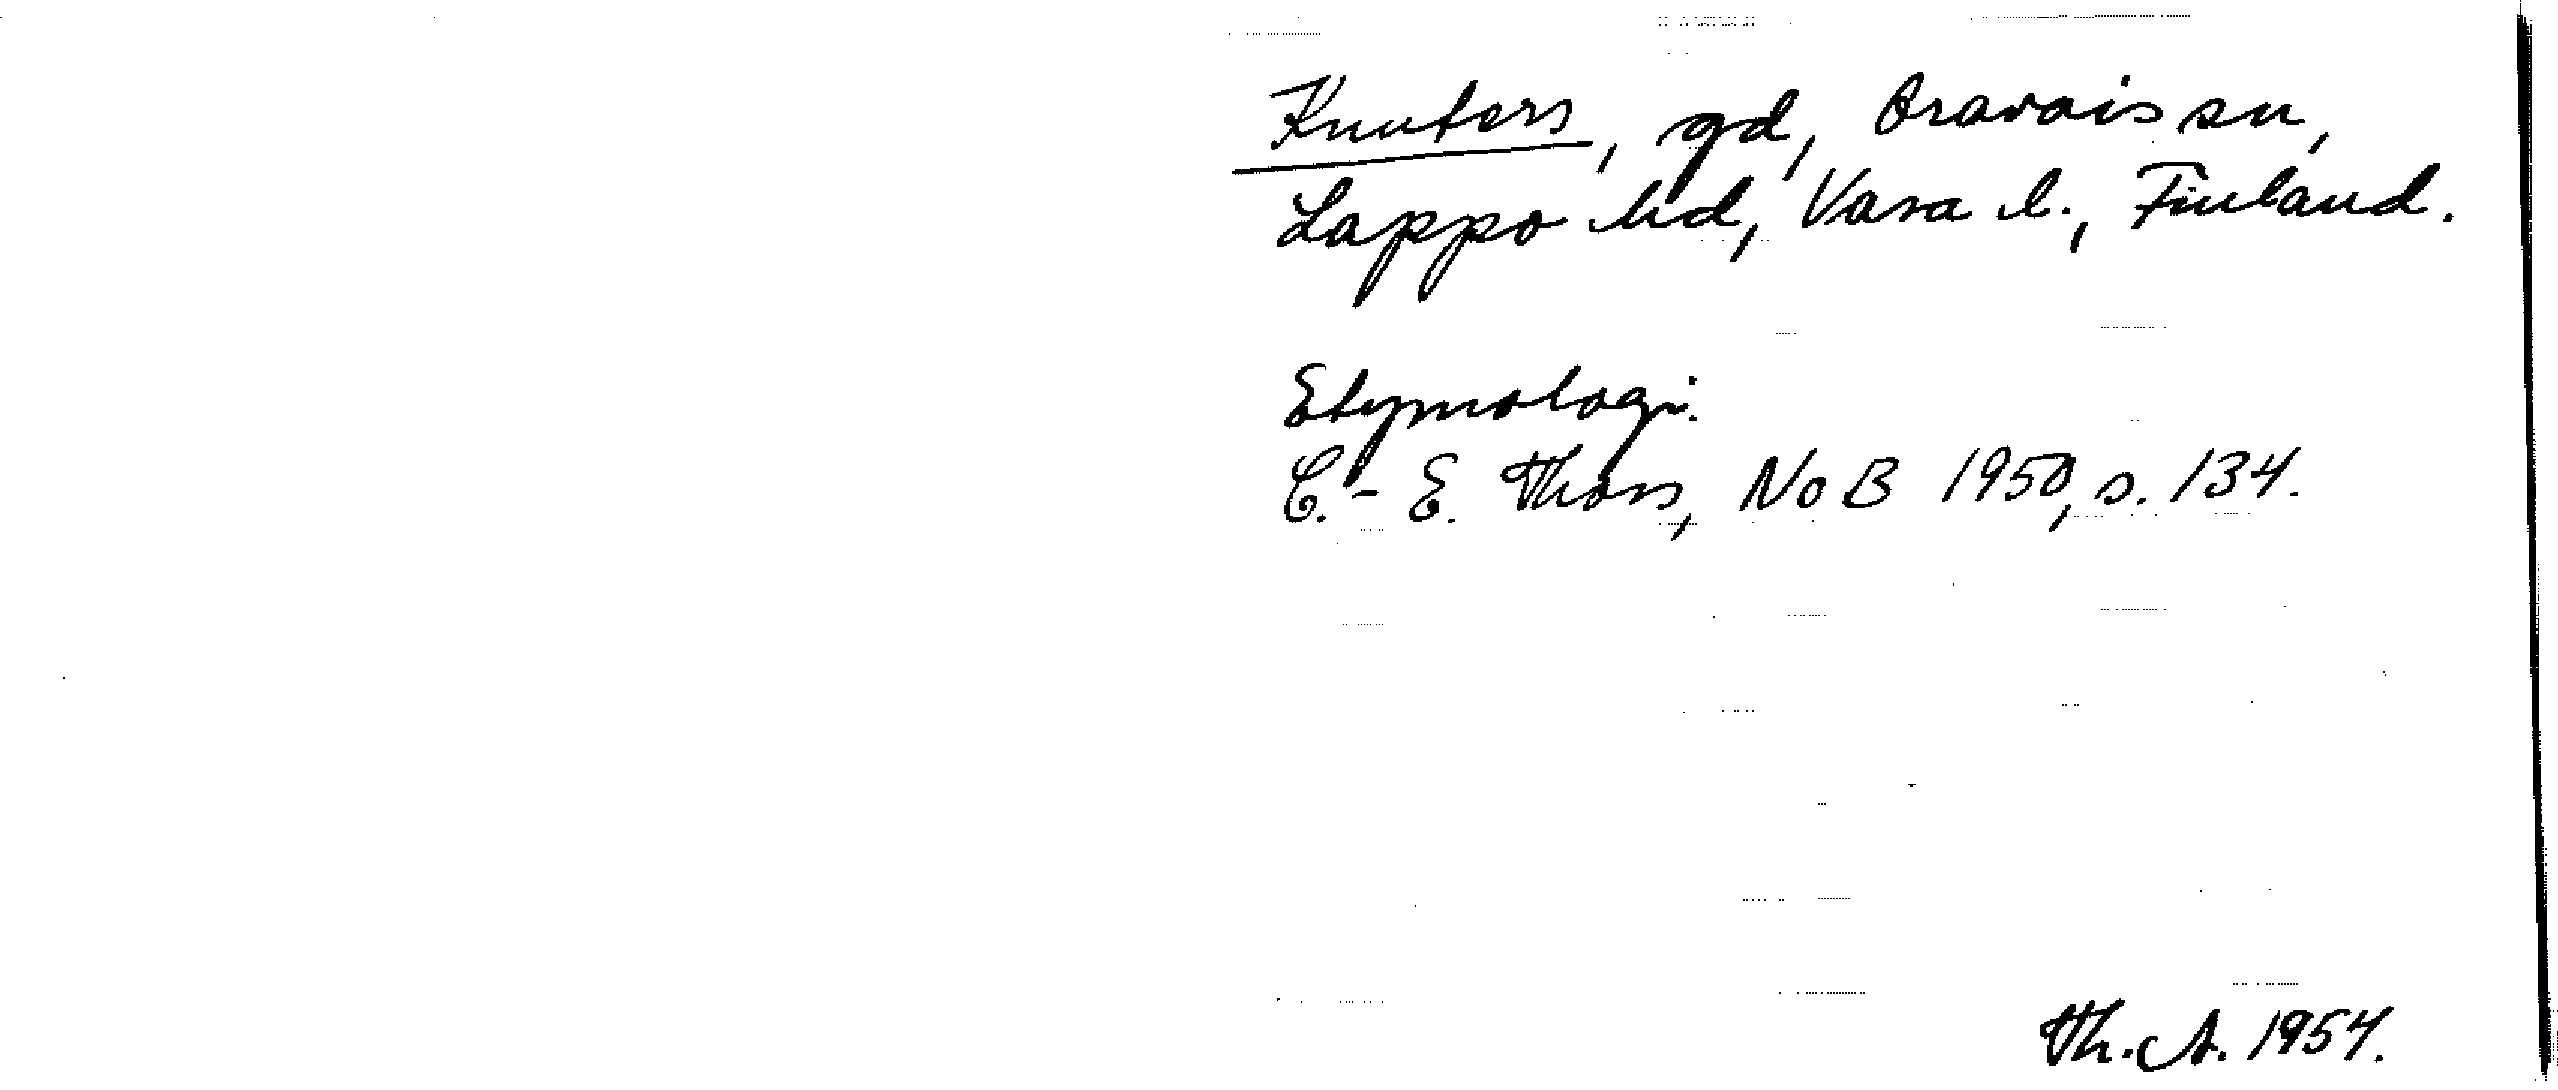 Knuters, gd, Oravais sn,
Lappo hd, Vasa l., Finland.
Etymologi.
C.-E. Thors, NoB 1950, s. 134.
Th. A. 1954.